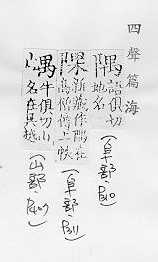 四聲篇海
隅 語俱切
地名
(阜部, P10)
新藏作隅在
高僧傳上帙
(阜部, P11)
嵎 牛俱切山
名在吳越
(山部,